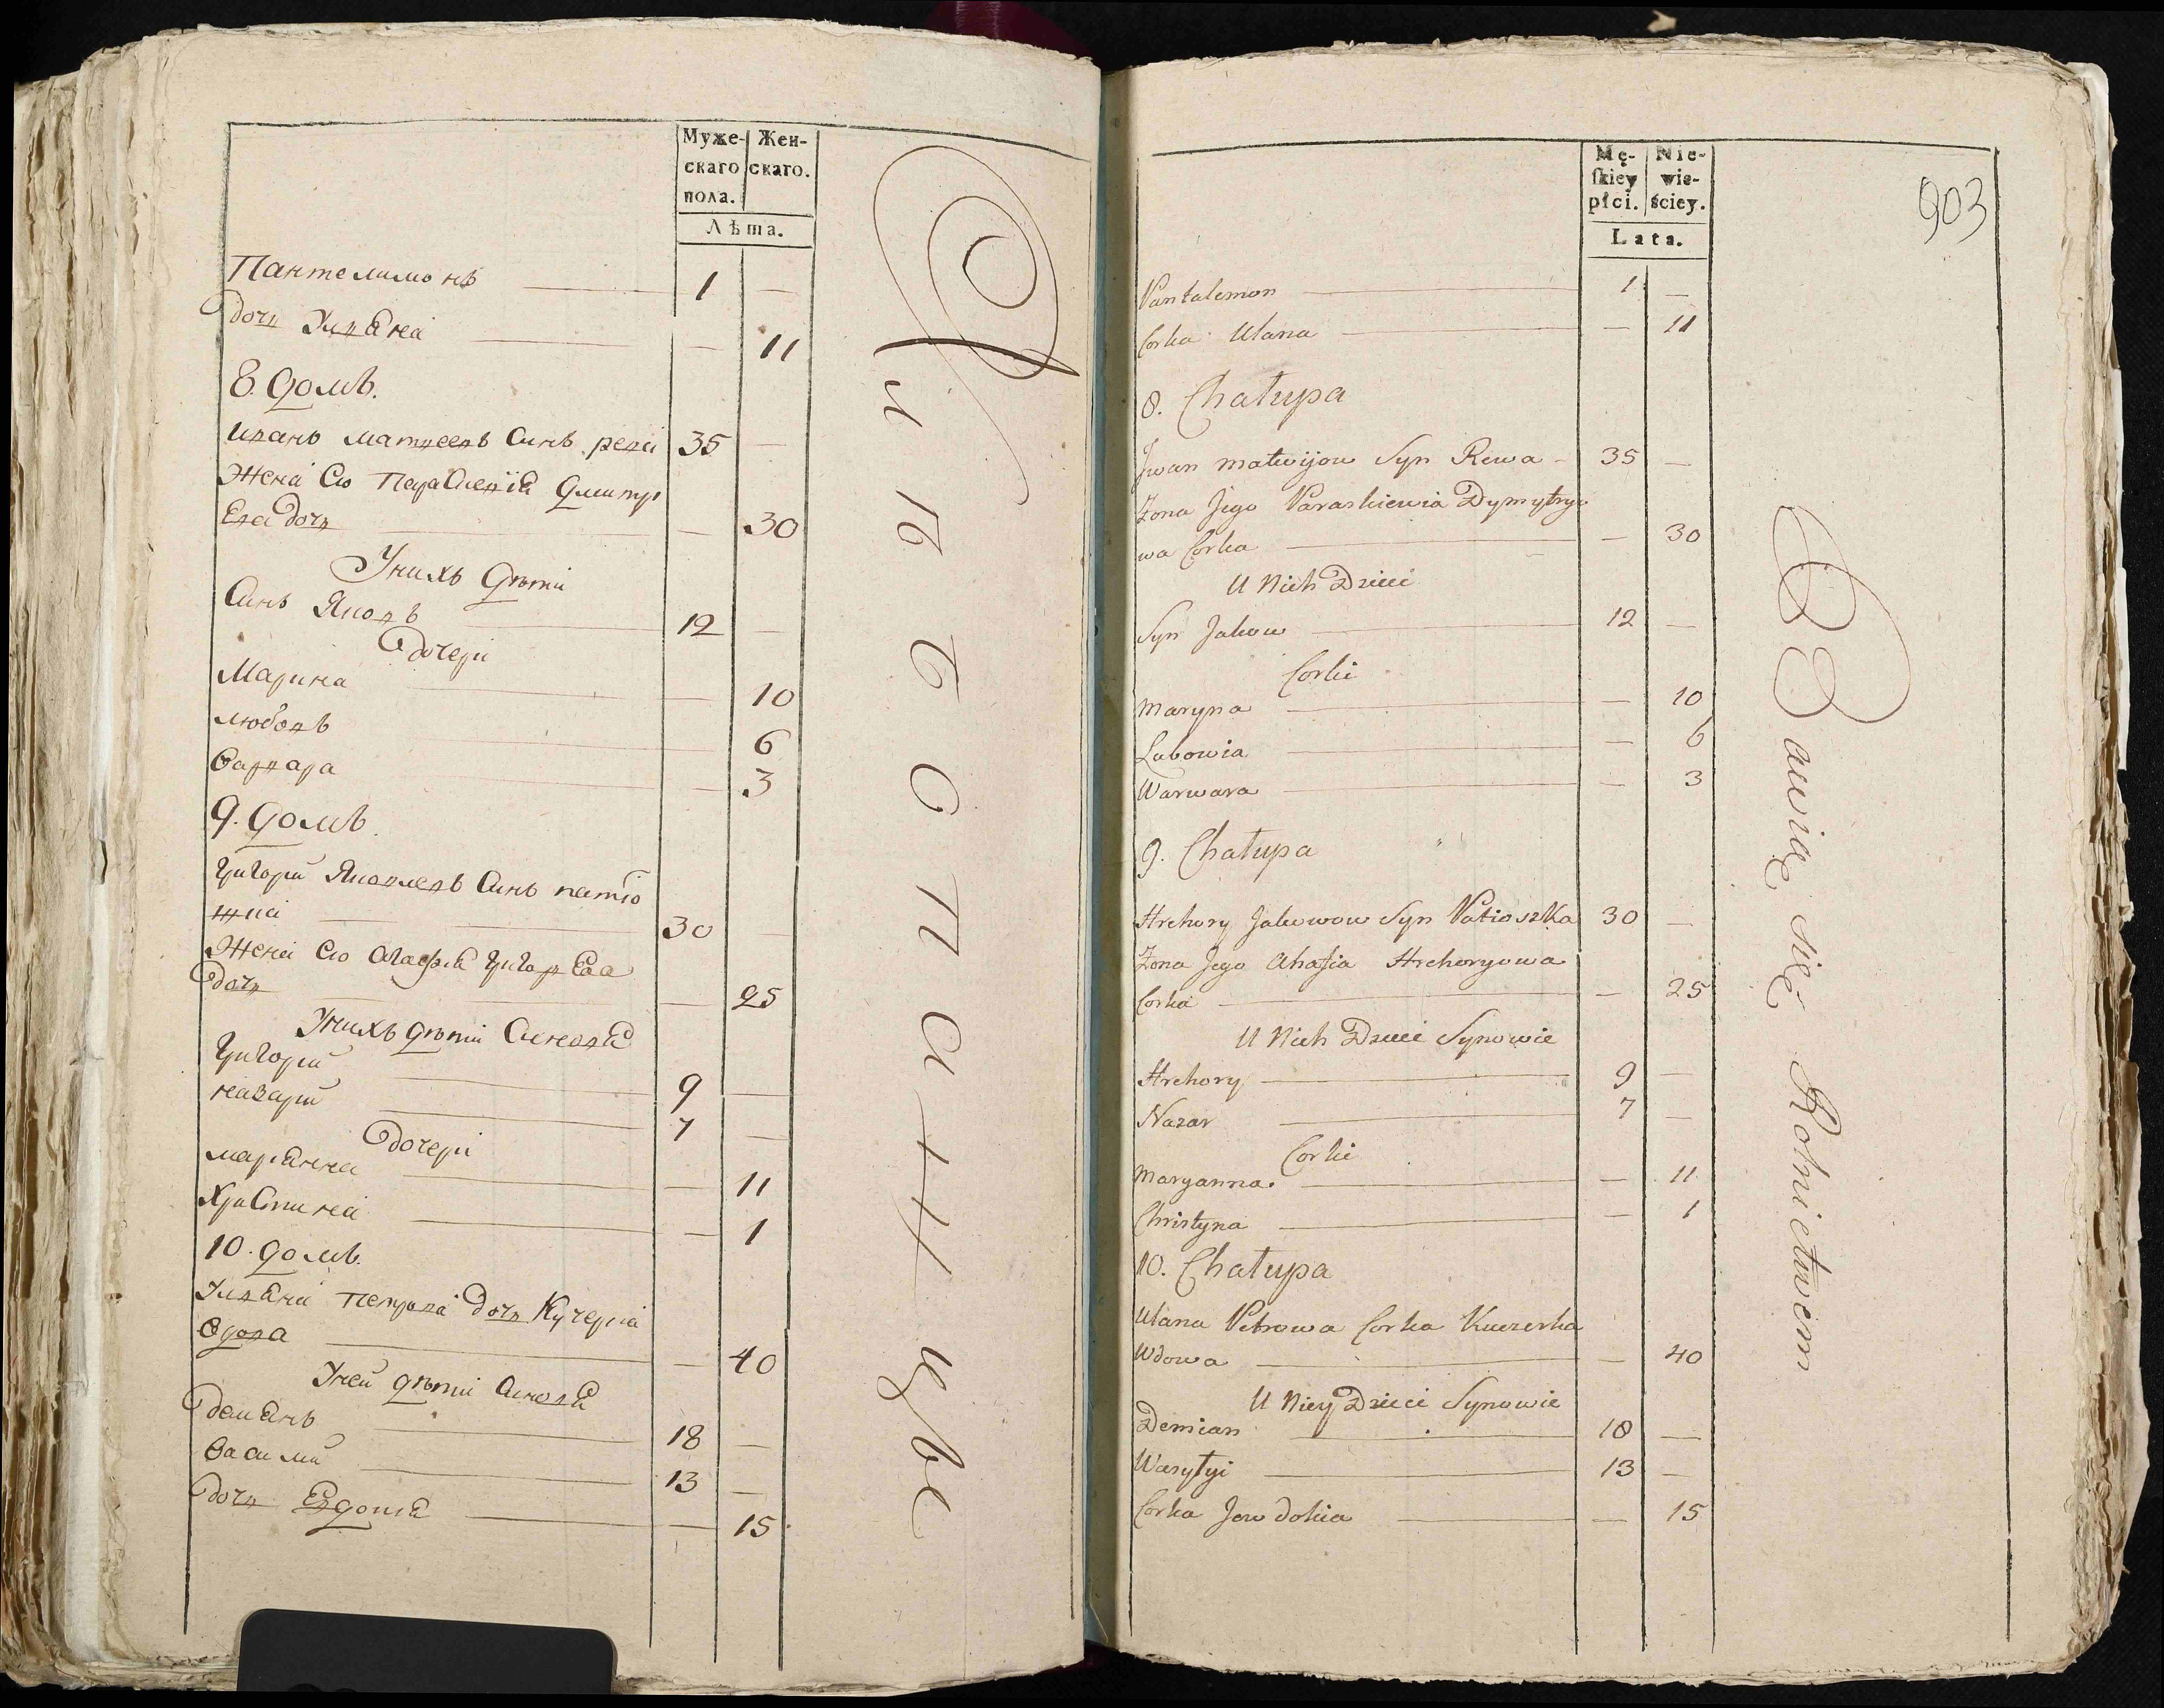 Муже-
скаго
пола.
Жен-
скаго.
Лѣта.
Пантелимонъ 1 —
дочь Уліяна — 11
8. домъ.
Иванъ Матвеевъ Синъ рева 35 —
Жена Его Параскевія Дмитрі
Ева дочь — 30
У нихъ дѣти
Синъ Яковъ 12 —
дочери
Марина — 10
Любовъ — 6
Варвара — 3
9. домъ.
Григорій Яковлевъ Синъ патіо
шка 30 —
Жена Его Агафія Григорева
дочь — 25
У нихъ дѣти Синовя
Григорій 9 —
Назарій 7 —
дочери
Маріянна — 11
Христина — 1
10. домъ.
Уліяна Петрова дочь Кучерка
Вдова — 40
У ней дѣти Синовя
Деміянъ 18 —
Василий 13 —
дочь Евдокія — 15
Хлѣбопашцы
Mę-
skiey
płci.
Nie-
wie-
ściey.
Lata.
903
Pantalemon 1 —
Corka Ulana — 11
8. Chałupa
Jwan Matwijow Syn Rewa 35 —
Zona Jego Paraskiewia Dymytryo
wa Corka — 30
U Nich Dzieci
Syn Jakow 12 —
Corki
Maryna — 10
Lubowia — 6
Warwara — 3
9. Chałupa
Hrehory Jakowow Syn Patioszka 30 —
Zona Jego Ahafia Hrehoryowa
Corka — 25
U Nich Dzieci Synowie
Hrehory 9 —
Nazar 7 —
Corki
Maryanna — 11
Christyna — 1
10. Chałupa
Ulana Petrowa Corka Kuczerka
Wdowa — 40
U Niey Dzieci Synowie
Demian 18 —
Wasyłyi 13 —
Corka Jewdokia — 15
Bawią się Rolnictwem